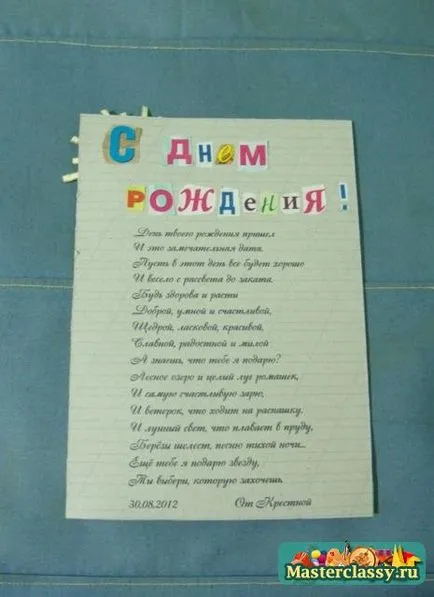 С ДНеМ
РОЖДеНИЯ!
День твоего рождения пришел
И это замечательная дата.
Пусть в этот день все будет хорошо
И весело с рассвета до заката.
Будь здорова и расти
Доброй, умной и счастливой,
Щедрой, ласковой, красивой,
Славной, радостной и милой
А знаешь, что тебе я подарю?
Лесное озеро и целый луг ромашек,
И самую счастливую зарю,
И ветерок, что ходит на распашку.
И лунный свет, что плавает в пруду,
Берёзы шелест, песню тихой ночи...
Ещё тебе я подарю звезду,
Ты выбери, которую захочешь.
30.08.2012 От Крестной
Masterclassy.ru